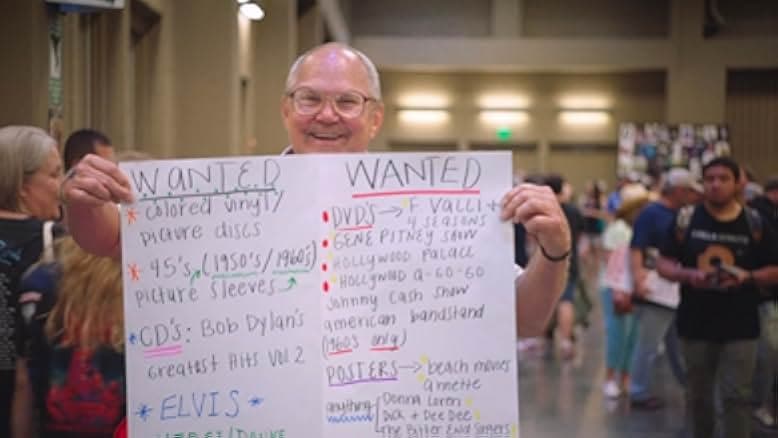 WANTED
* colored vinyl/
picture discs
* 45's, (1950's/1960's)
picture sleeves
* CD's: Bob Dylan's
Greatest Hits Vol 2
* ELVIS *
WANTED
DVD'S → F VALLI +
4 SEASONS
GENE PITNEY SHOW
HOLLYWOOD PALACE
HOLLYWOOD A-GO-GO
Johnny Cash Show
american bandstand
(1960s only)
POSTERS → beach movies
annette
anything
Donna Loren
Dick + Dee Dee
The Bitter End Singers